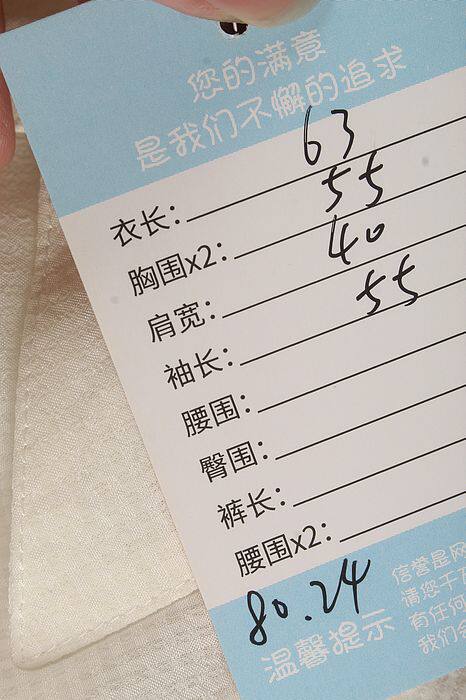 您的满意
是我们不懈的追求
衣长: 63
胸围x2: 55
肩宽: 40
袖长: 55
腰围:
臀围:
裤长:
腰围x2:
80.24
温馨提示
信誉是网
请您千万
有任何
我们会